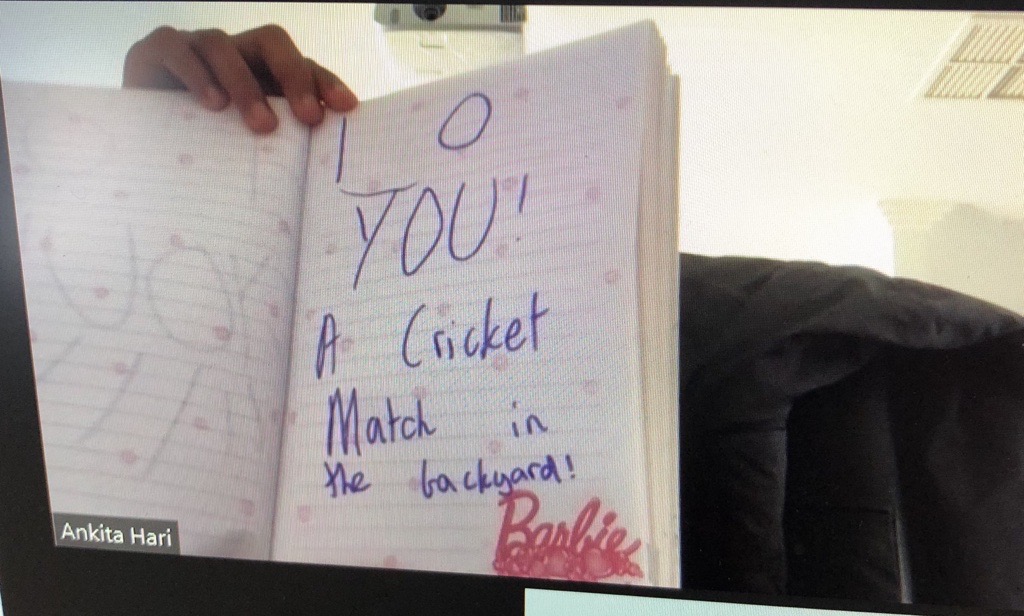 I O
YOU!
A Cricket
Match in
the backyard!
Barbie
Ankita Hari